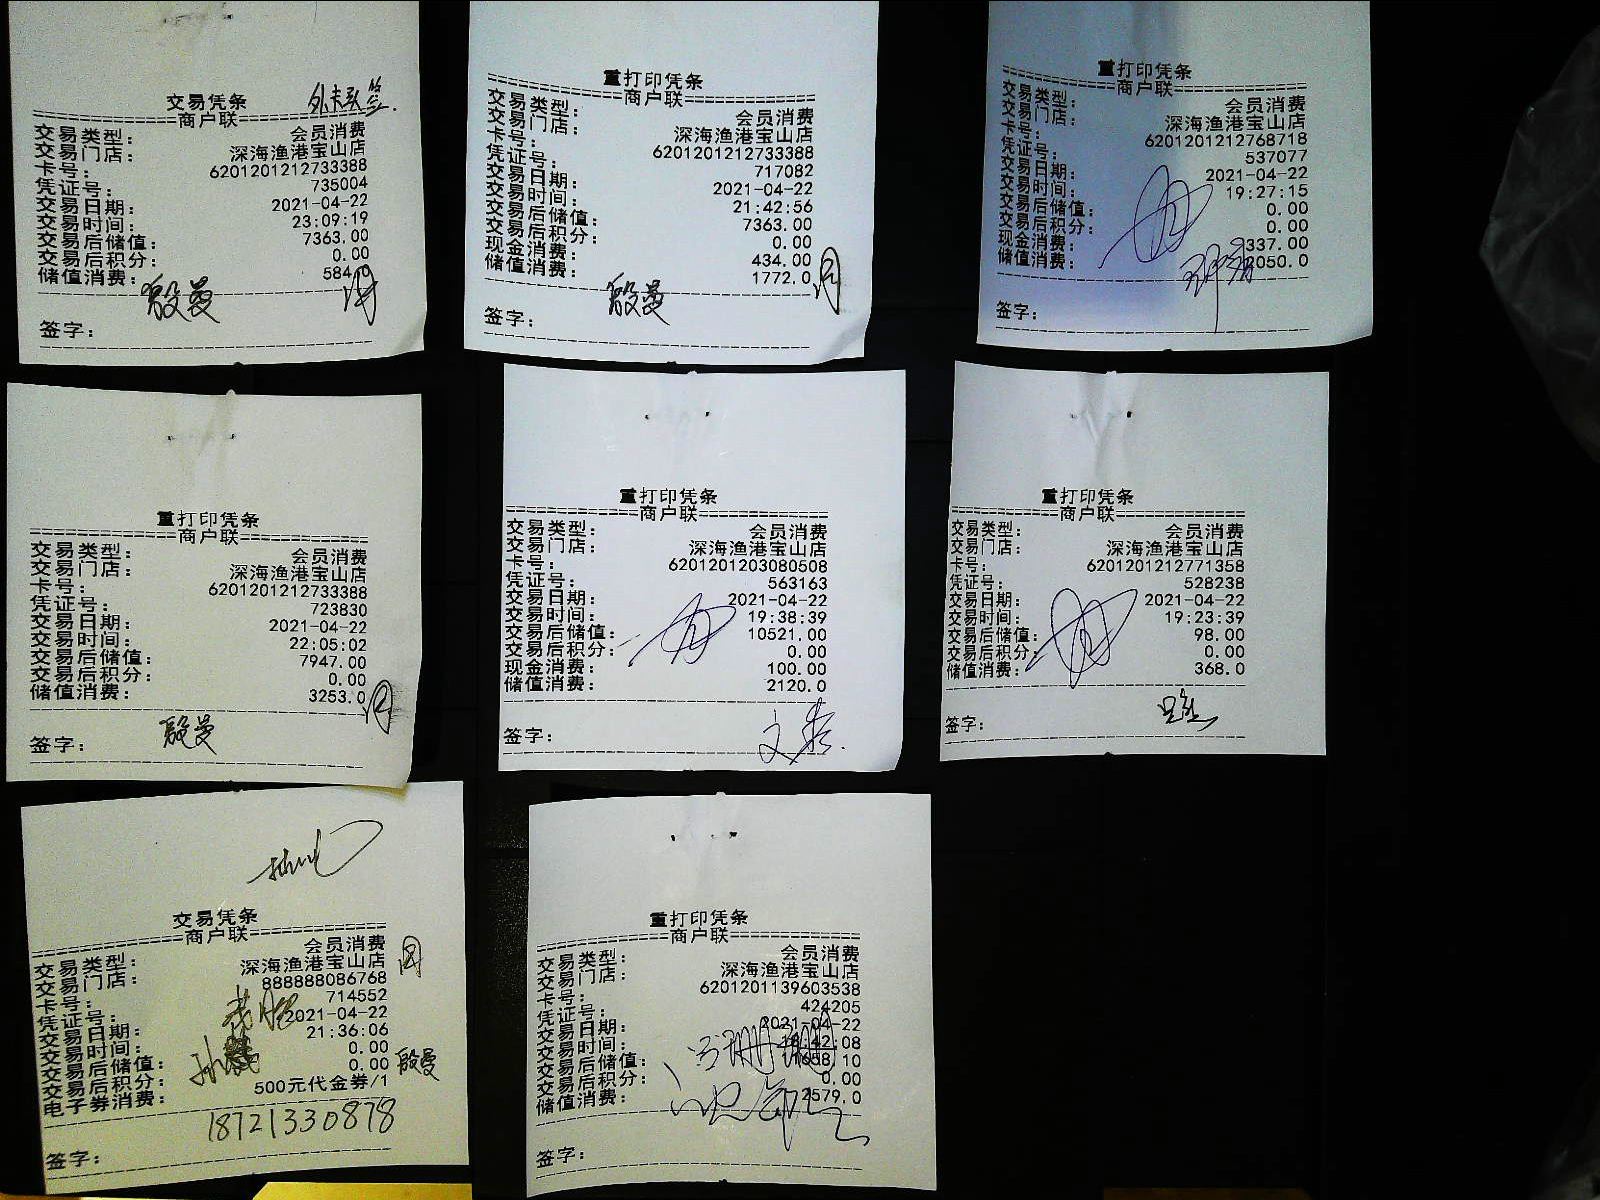 交易凭条
商户联
交易类型： 会员消费
交易门店： 深海渔港宝山店
卡号： 6201201212733388
凭证号： 735004
交易日期： 2021-04-22
交易时间： 23:09:19
交易后储值： 7363.00
交易后积分： 0.00
储值消费： 584.0
殷曼
签字：
重打印凭条
商户联
交易类型： 会员消费
交易门店： 深海渔港宝山店
卡号： 6201201212733388
凭证号： 717082
交易日期： 2021-04-22
交易时间： 21:42:56
交易后储值： 7363.00
交易后积分： 0.00
现金消费： 434.00
储值消费： 1772.0
殷曼
签字：
重打印凭条
商户联
交易类型： 会员消费
交易门店： 深海渔港宝山店
卡号： 6201201212768718
凭证号： 537077
交易日期： 2021-04-22
交易时间： 19:27:15
交易后储值： 0.00
交易后积分： 0.00
现金消费： 337.00
储值消费： 2050.0
签字：
重打印凭条
商户联
交易类型： 会员消费
交易门店： 深海渔港宝山店
卡号： 6201201212733388
凭证号： 723830
交易日期： 2021-04-22
交易时间： 22:05:02
交易后储值： 7947.00
交易后积分： 0.00
储值消费： 3253.0
签字： 殷曼
重打印凭条
商户联
交易类型： 会员消费
交易门店： 深海渔港宝山店
卡号： 6201201203080508
凭证号： 563163
交易日期： 2021-04-22
交易时间： 19:38:39
交易后储值： 10521.00
交易后积分： 0.00
现金消费： 100.00
储值消费： 2120.0
签字：
重打印凭条
商户联
交易类型： 会员消费
交易门店： 深海渔港宝山店
卡号： 6201201212771358
凭证号： 528238
交易日期： 2021-04-22
交易时间： 19:23:39
交易后储值： 98.00
交易后积分： 0.00
储值消费： 368.0
签字：
交易凭条
商户联
交易类型： 会员消费
交易门店： 深海渔港宝山店
卡号： 888888086768
凭证号： 714552
交易日期： 2021-04-22
交易时间： 21:36:06
交易后储值： 0.00
交易后积分： 0.00 殷曼
电子券消费： 500元代金券/1
18721330878
签字：
重打印凭条
商户联
交易类型： 会员消费
交易门店： 深海渔港宝山店
卡号： 6201201139603538
凭证号： 424205
交易日期： 2021-04-22
交易时间： :42:08
交易后储值： 658.10
交易后积分： 0.00
储值消费： 2579.0
签字：